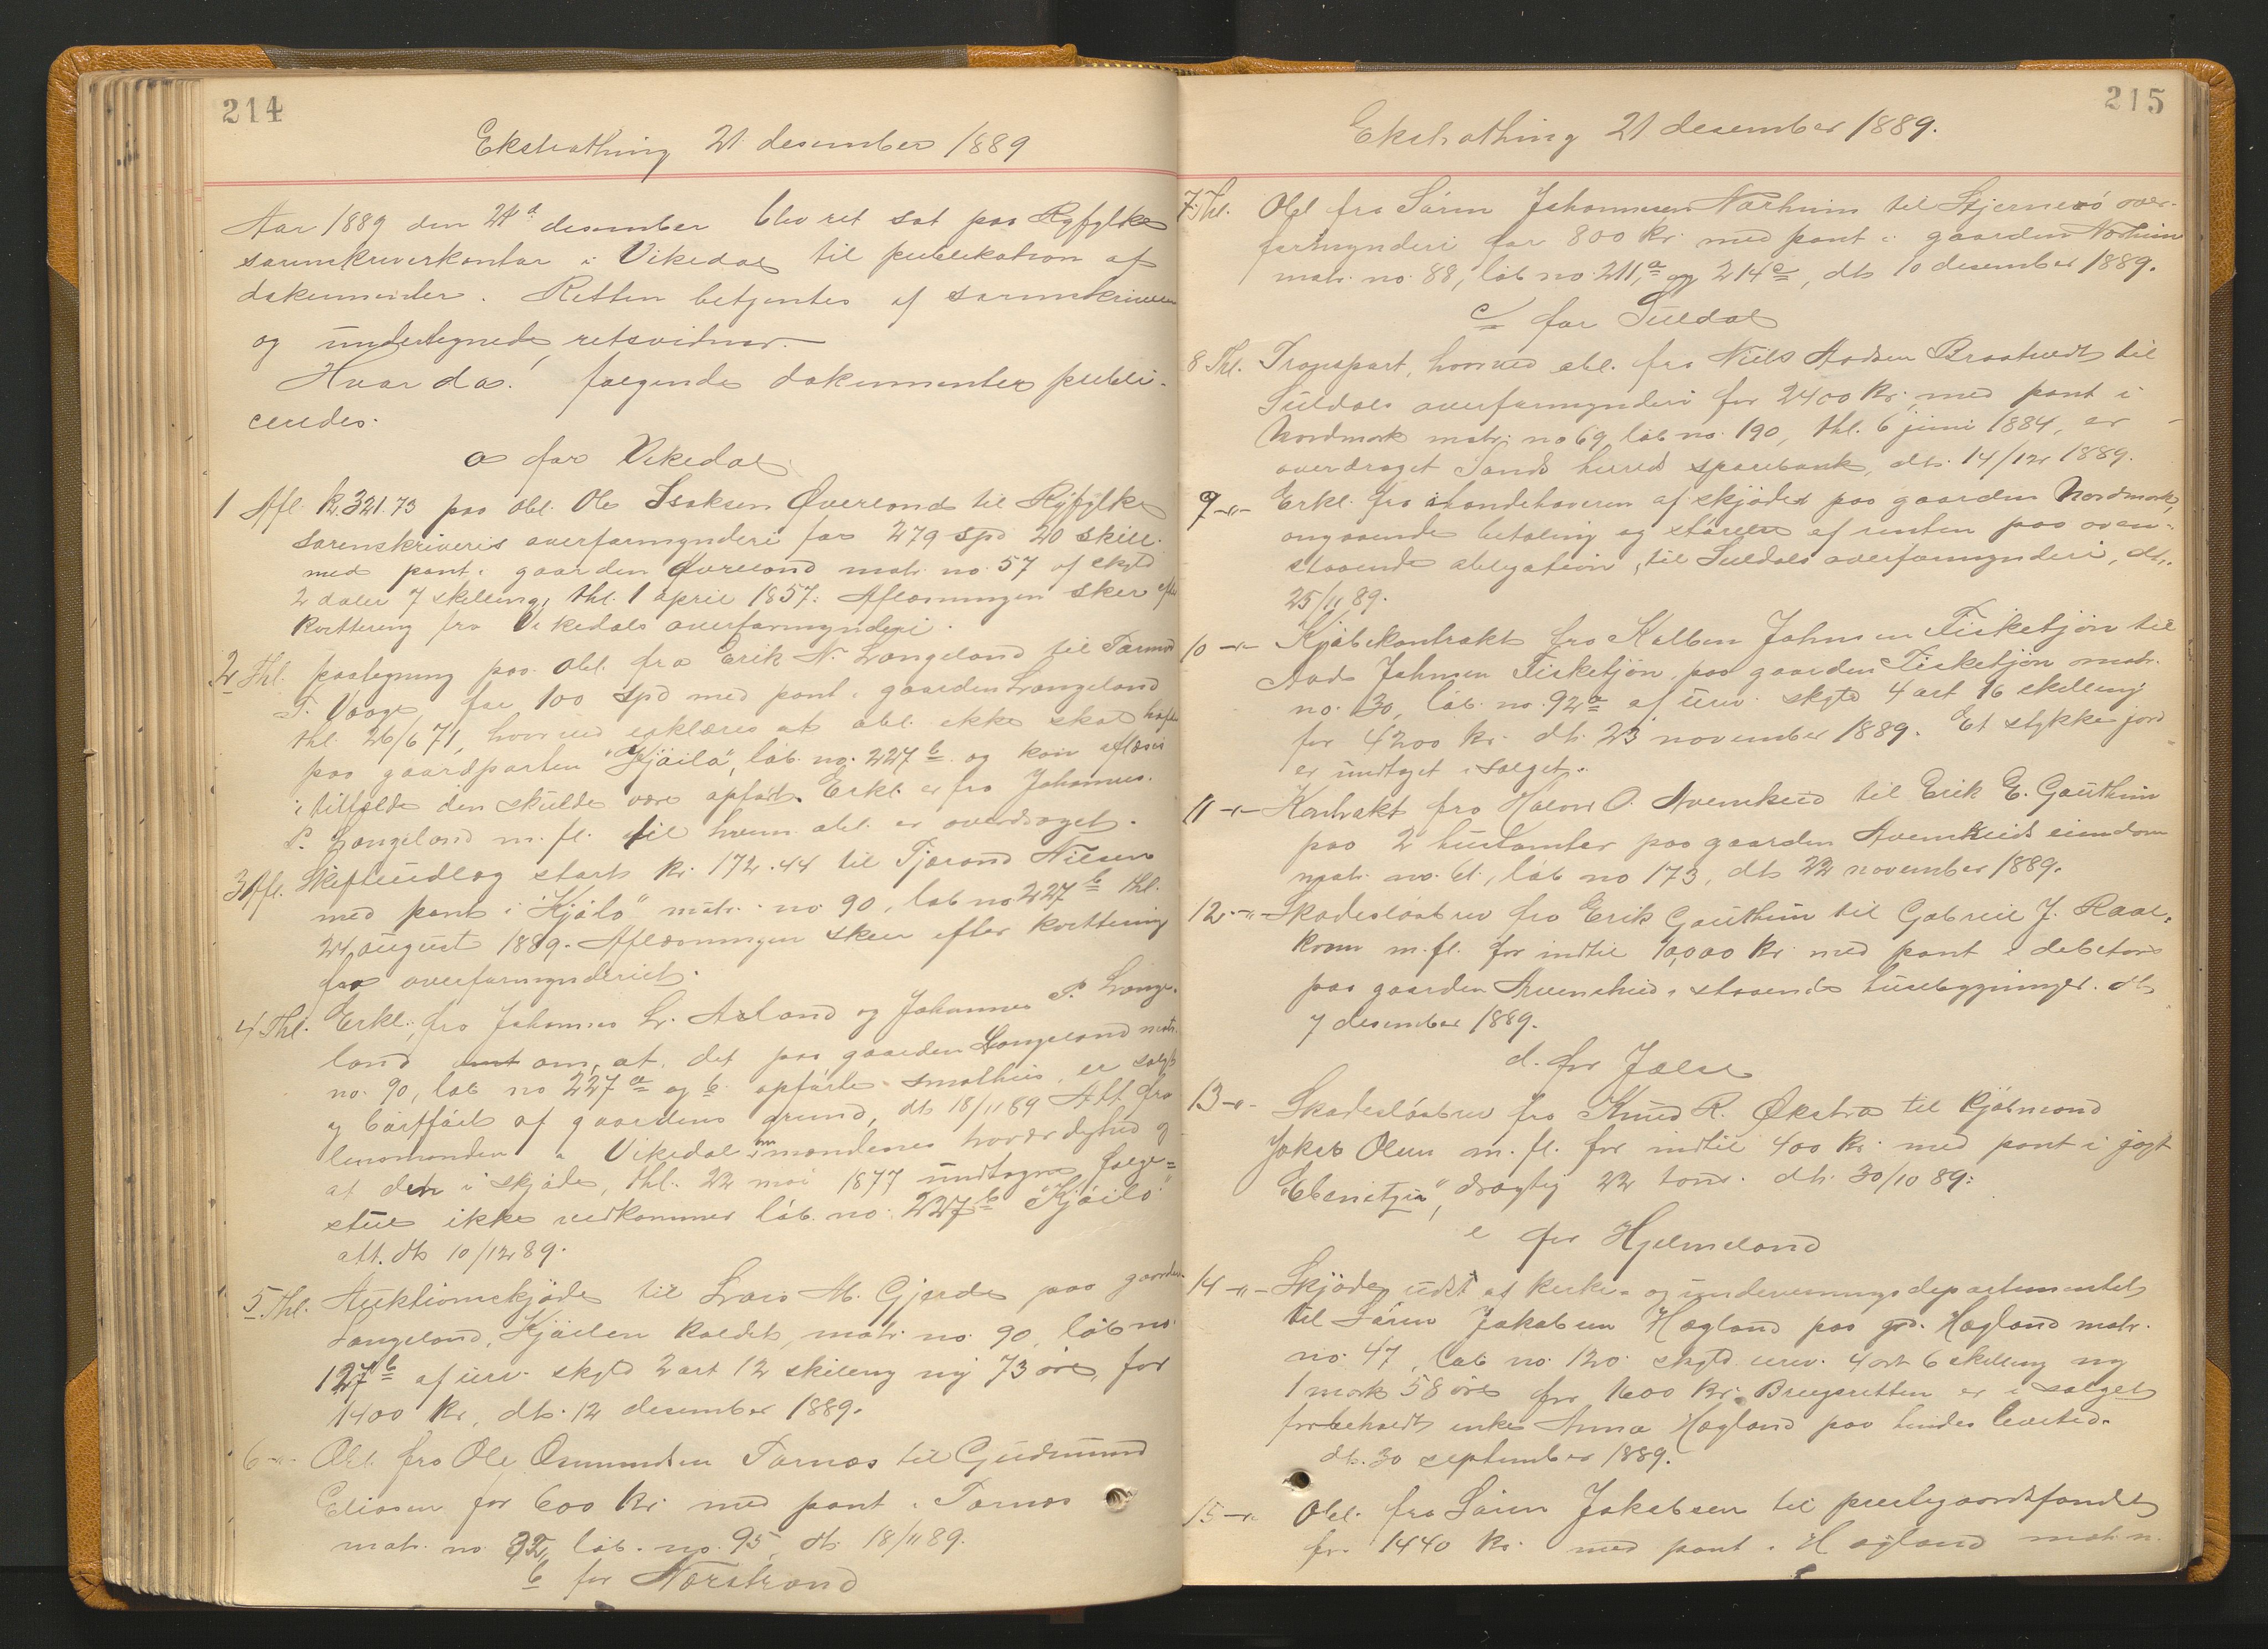 214
Ekstrathing 21 desember 1889
Aar 1889 den 21de desember blev ret sat paa Ryfylke
sorenskriverkontor i Vikedal til publikation af
dokumenter. Retten betjentes af sorenskriveren
og undertegnede retsvidner.
Hvor da! følgende dokumenter publi-
ceredes.
a for Vikedal
1 Afl. kr. 321.73 paa obl. Ole Isaksen Øverland til Ryfylke
sorenskriveris overformynderi for 279 spd 20 skill.
med pant i gaarden Øverland matr. no. 57 af skyld
2 daler 7 skilling, thl. 1 april 1857. Aflæsningen sker efter
kvittering fra Vikedals overformynderi.
2 Thl. paategning paa obl. fra Erik N. Langeland til Tormod
T. Vaage for 100 spd med pant i gaarden Langeland
thl. 26/6 71, hvorved erklæres at obl. ikke skal hæfte
paa gaardparten "Kjøila", løb. no. 227 b og kan aflæses
i tilfælde den skulde være opført. Erkl. er fra Johannes
P. Langeland m. fl. til hvem obl. er overdraget.
3 Afl. Skifteudlæg stort kr. 172.44 til Tjærand Nilsen
med pant i "Kjöila" matr. no. 90, løb no 227 b thl.
24 august 1889. Aflæsningen sker efter kvittering
fra overformynderiet.
4 Thl. Erkl. fra Johannes Lr. Axland og Johannes P. Lange-
land om, at det paa gaarden Langeland matr.
no. 90, løb no 227 a og b opførte smalhus er solgt
og bortført af gaardens grund, dt. 18/11 89 Att. fra
lensmanden i Vikedal om mændenes troværdighed og
at den i skjøde, thl. 22 mai 1877 undtagne folge=
stue ikke vedkommer løb. no. 227 b "Kjöila"
att. dt. 10/12 89.
5 Thl. Auktionsskjøde til Lars M. Gjerde paa gaarden
Langeland, Kjøilen kaldet, matr. no. 90, løb no.
127 b af urv. skyld 2 ort 12 skilling ny 73 øre, for
1400 kr, dt. 12 desember 1889.
6 -"- Obl. fra Ole Osmundsen Tornes til Gudmund
Eliasen for 600 kr. med pant i Tornes
matr. no. 32, løb. no. 95, dt. 18/11 89.
b for Nærstrand
215
Ekstrathing 21 desember 1889.
7. Thl. Obl fra Sören Johannesen Nærheim til Stjernerö over-
formynderi for 800 kr. med pant i gaarden Nærheim
matr. no. 88, løb no. 211, a og 214 c, dt. 10 desember 1889.
c/ for Suldal
8 Thl. Transport, hvorved obl. fra Niels Aadsen Bratvedt til
Suldals overformynderi for 2400 kr. med pant i
Nordmork matr. no 69 løb no. 190, thl. 6 juni 1884, er
overdraget Sands herreds sparebank, dt. 14/12 1889.
9 -"- Erkl. fra ihændehaveren af skjødet paa gaarden Nordmork,
angaaende betaling og störelse af renten paa oven-
staaende obligation, til Suldals overformynderi, dt.
25/11 89.
10 -"- Kjøbekontrakt fra Kolben Johnsen Fisketjön til
Aad Johnsen Fisketjön, paa gaarden Fisketjön matr.
no. 30, løb. no. 92 a af urv. skyld 4 ort 16 skilling
for 4200 kr. dt. 23 november 1889. Et stykke jord
er undtaget i salget.
11 -"- Kontrakt fra Halvor O. Kvenskud til Erik E. Gautheim
paa 2 hustomter paa gaarden eiendom
matr. no. 61, løb no 173, dt. 22 november 1889.
12 -"- Skadesløsbrev fra Erik Gautheim til Gabriel J. Raal-
kvam m. fl. for indtil 10,000 kr. med pant i debitors
paa gaarden staaende husebygninger. dt.
7 desember 1889.
d. for Jælse
13 -"- Skadesløsbrev fra Knud R. Økstra til kjøbmand
Jakob Olsen m. fl. for indtil 400 kr. med pant i jagt
"Ebenetzer", drægtig 22 tons. dt. 30/10 89.
e for Hjelmeland
14 -"- Skjøde udst. af kirke- og undervisningsdepartementet
til Sören Jakobsen Hagland paa grd. Hagland matr.
no. 47, løb no. 120 skyld urv. 4 ort 6 skilling ny
1 mark 58 øre for 1600 kr. Brugsretten er i salget
forbeholdt enke Anna Hagland paa hendes levetid.
dt. 30 september 1889.
15 -"- Obl. fra Sören Jakobsen til prestegaardsfondet
for 1440 kr. med pant i Hagland matr. n.